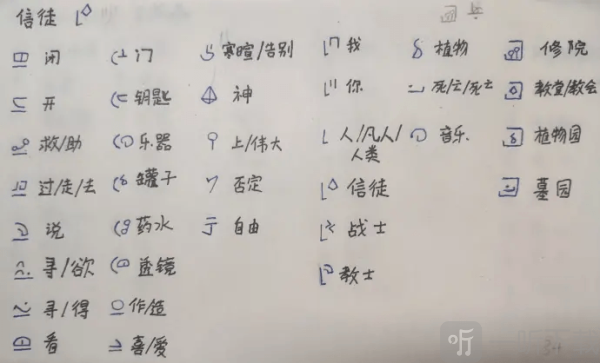 信徒
闭 门 寒暄/告别 我 植物 修院
开 钥匙 神 你 死/亡/死亡 教堂/教会
救/助 乐器 上/伟大 人/凡人/人类 音乐 植物园
过/走/去 罐子 否定 信徒 墓园
说 药水 自由 战士
寻/欲 透镜 教士
寻/得 作/造
看 喜/爱
听